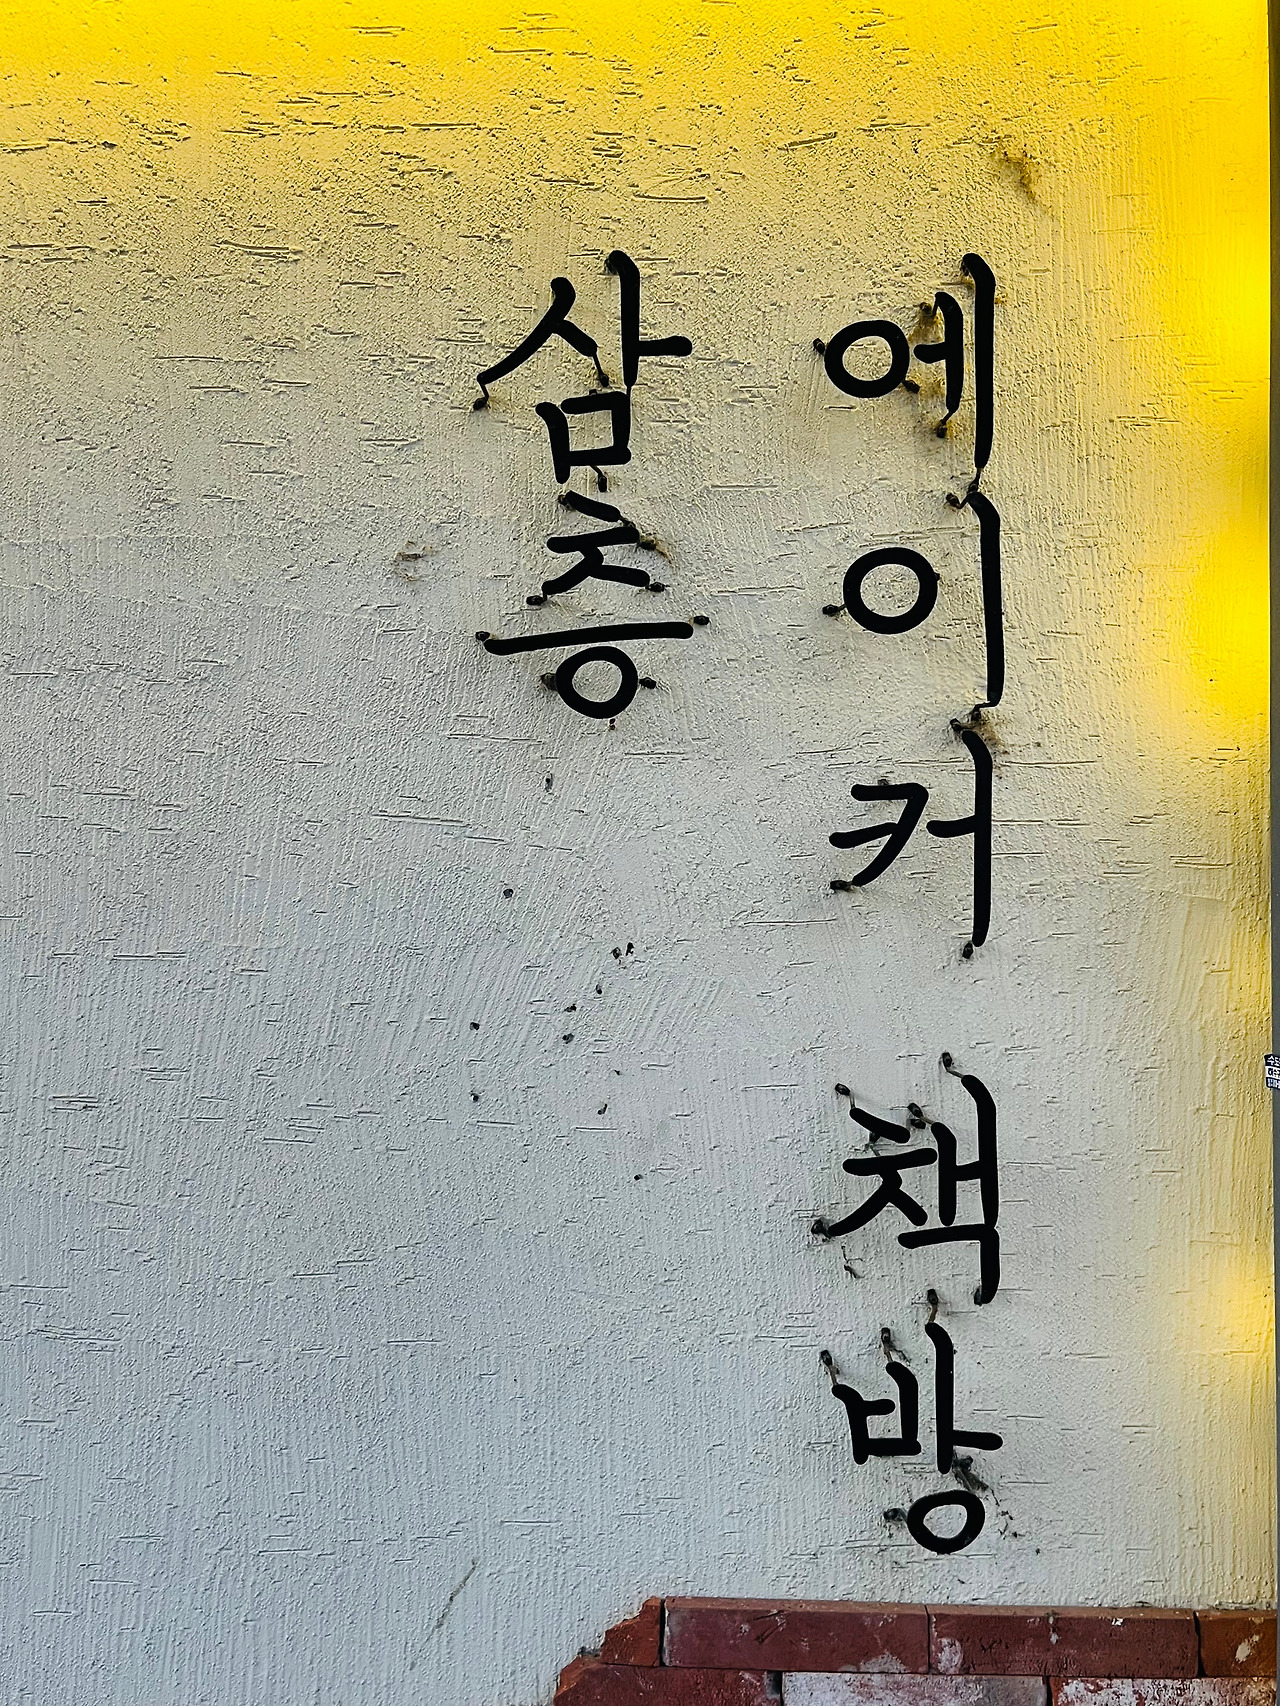 에이커 책방
삼층